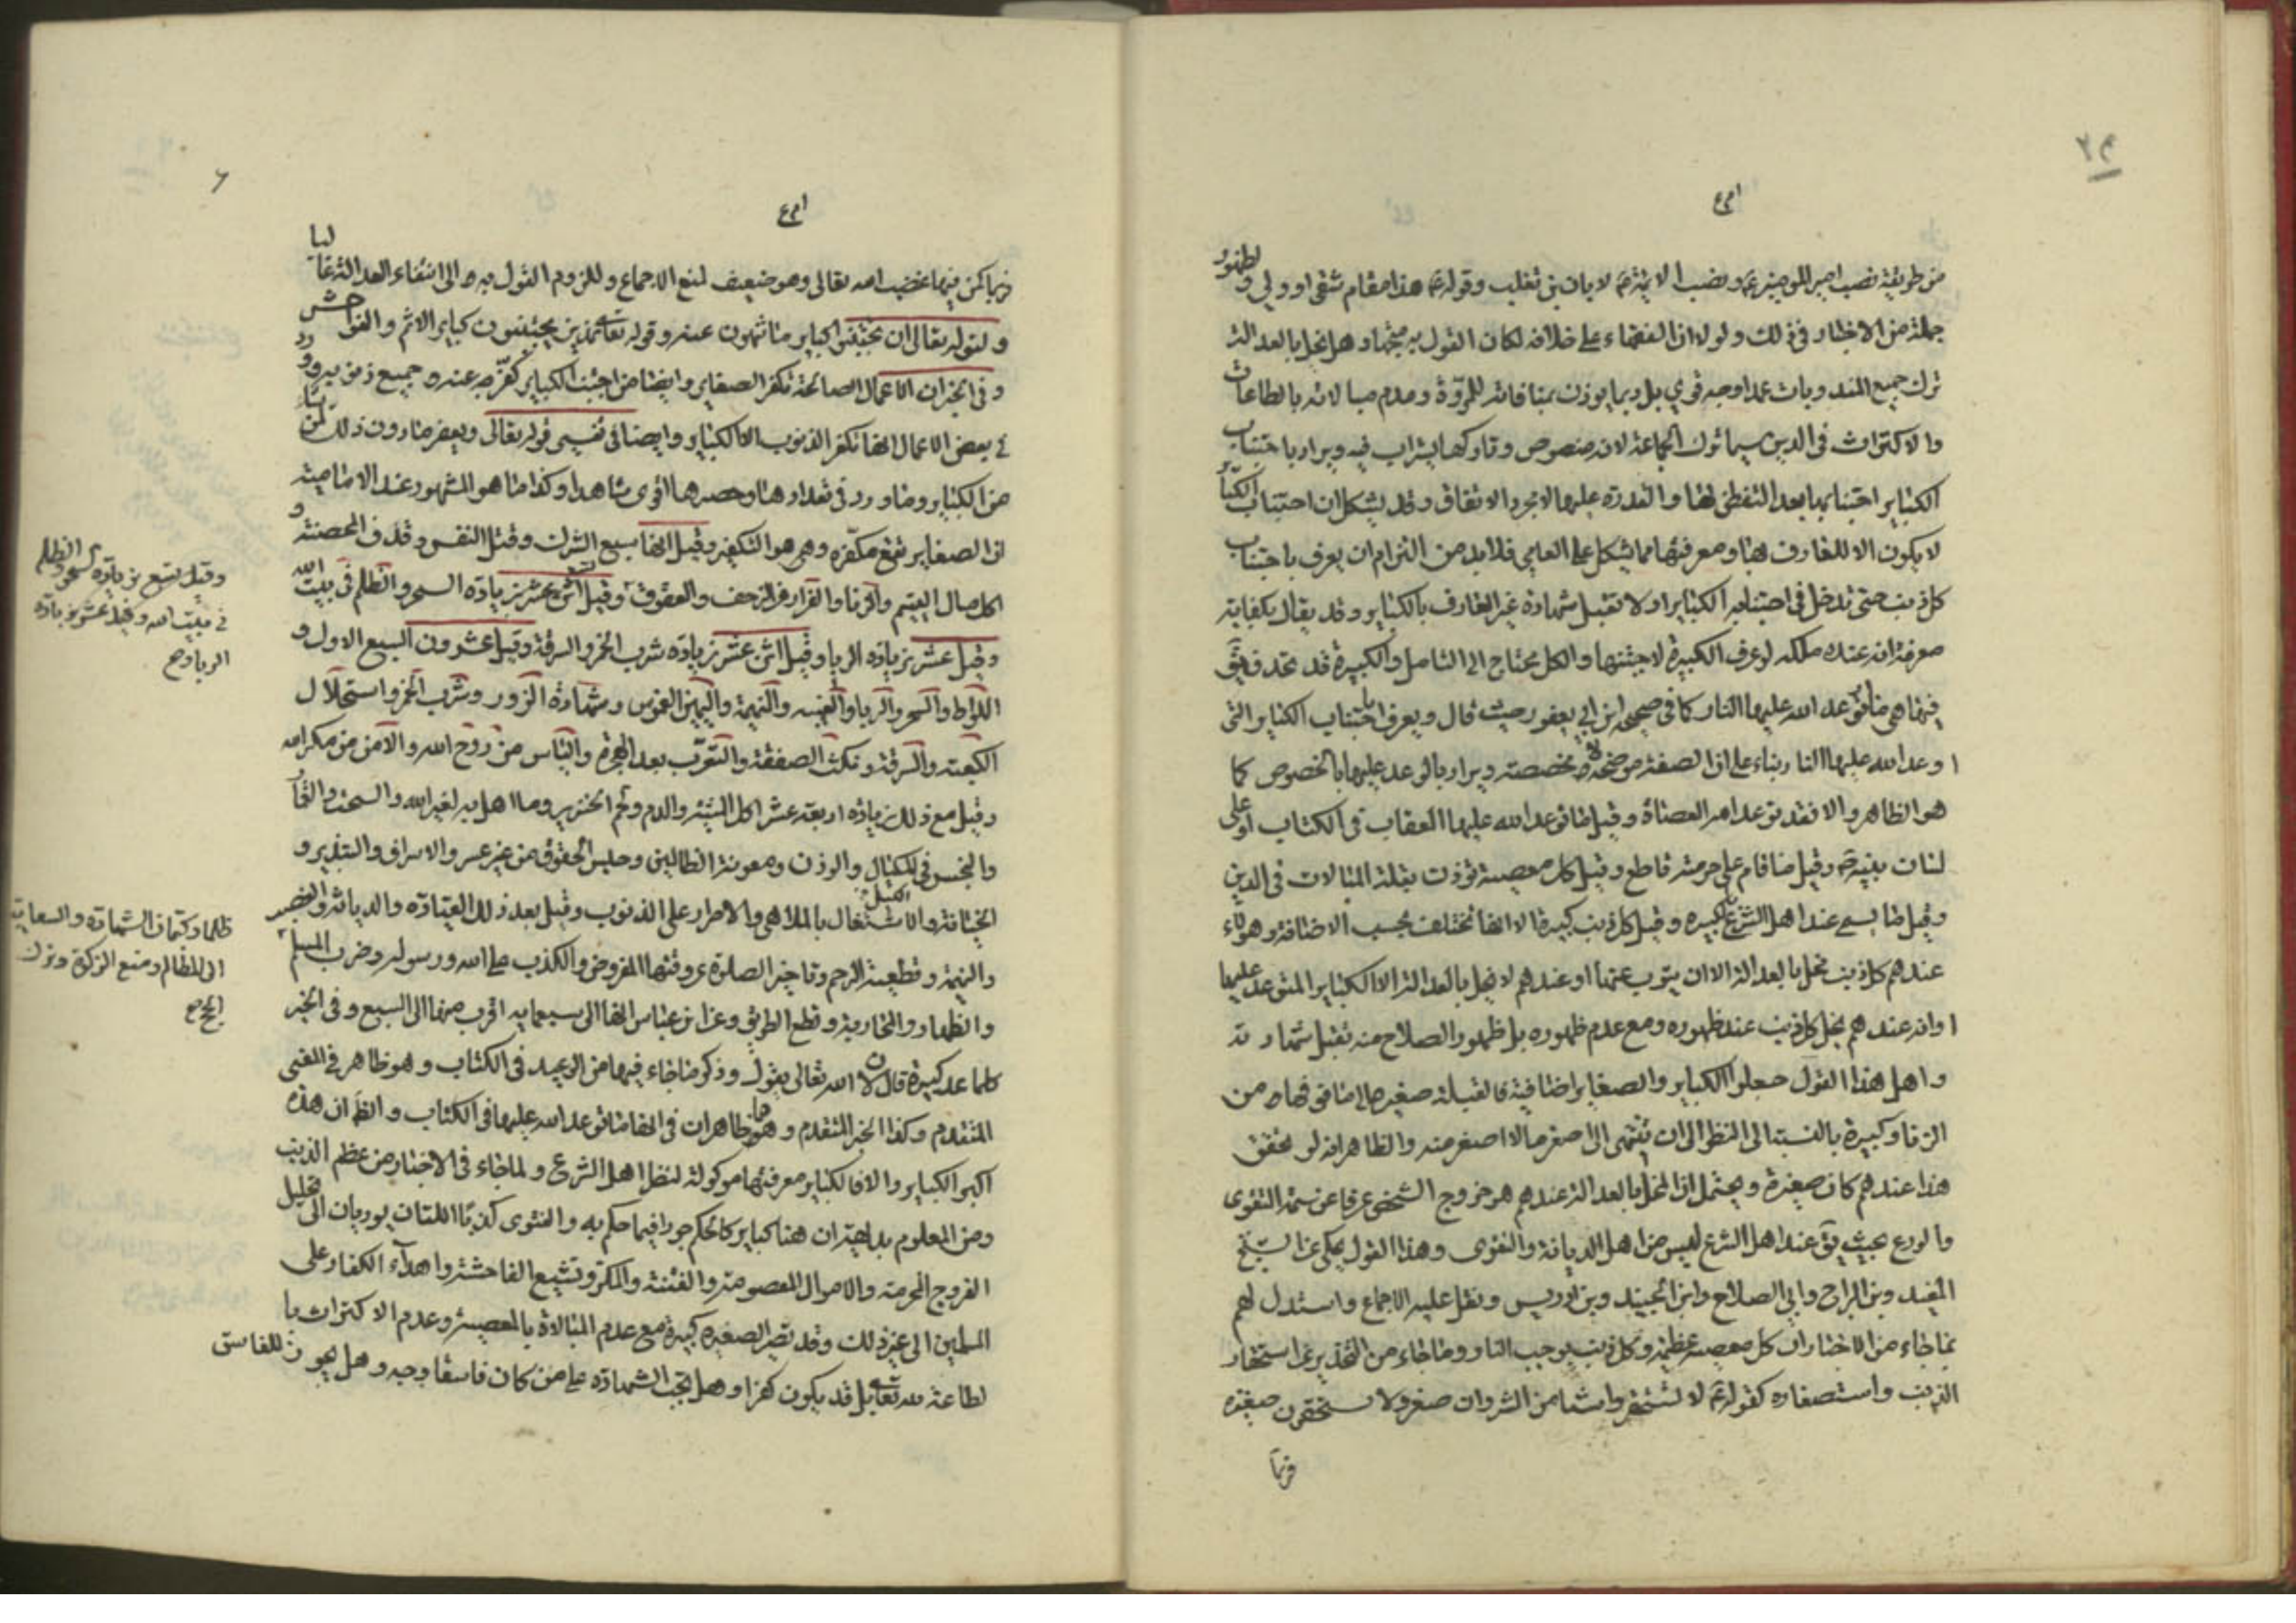 من طريقة نصب امير المومنين ع ونصب الائمة ع لابان بن تغلب وقوله ع هذا مقام شقي او ولي ولظهور
جملة من الاخبار في ذلك ولولا ان الفقهاء على خلافه لكان القول به متجها وهل يخل بالعدالة
ترك جميع المندوبات عمدا وجه قوي بل ربما يوذن بمنافاته للمروّة وعدم مبالاته بالطاعات
والاكتراث في الدين سيما ترك الجماعة لانه منصوص وتاركها يستراب فيه ويراد باجتناب
الكباير اجتنابها بعد التفطن لها والقدرة عليها لا مجرد الاتفاق وقد يشكل ان اجتناب الكبائر
لا يكون الا للعارف بها ومعرفتها مما يشكل على العامي فلا بد من التزام ان يعرف باجتناب
كل ذنب حتى تدخل في اجتنابه الكباير او لا تقبل شهادة غير العارف بالكباير وقد يقال بكفاية
معرفة ان عنده ملكه لو عرف الكبيرة لاجتنبها والكل يحتاج الى التامل والكبيرة قد تحد فيق
فيها هي ما توعد الله عليها النار كما في صحيح ابن ابي يعفور حيث قال ويعرف باجتناب الكباير التي
اوعد الله عليها النار بناء على ان الصفة موضحة لا مخصصة ويراد بالوعد عليها بالخصوص كما
هو الظاهر والا فقد توعد امر العصاة وقيل ما توعد الله عليها العقاب في الكتاب او على
لسان نبيه ص وقيل ما قام على حرمته قاطع وقيل كل معصية توذن بقلة المبالات في الدين
وقيل ما يسمى عند اهل الشرع كبيره وقيل كل ذنب كبيرة الا انها تختلف بحسب الاضافة وهولاء
عندهم كل ذنب مخل بالعدالة الا ان يتوب عنها او عندهم لا يخل بالعدالة الا الكباير المتوعد عليها
او انه عندهم يخل كل ذنب عند ظهوره ومع عدم ظهوره بل ظهور الصلاح منه تقبل شهادته
واهل هذا القول جعلوا الكباير والصغاير اضافية فالقبلة صغيرة الى ما فوقها من
الزنا وكبيرة بالنسبة الى النظر الى ان تنتهي الى اصغر ما لا اصغر منه والظاهر انه لو تحقق
هذا عندهم كان صغيرة ويحتمل ان المخل بالعدالة عندهم هو خروج الشخص عرفا عن سمة التقوى
والورع بحيث يق عند اهل الشرع ليس من اهل الديانة والتقوى وهذا القول يحكى عن الشيخ
المفيد وبن البراج وابي الصلاح وابن الجنيد وبن ادريس ونقل عليه الاجماع واستدل لهم
بما جاء من الاخبار ان كل معصية عظيمة وكل ذنب يوجب النار وما جاء من التحذير عن استحقار
الذنب واستصغاره كقوله ع لا تستحقروا شيئا من الشر وان صغر ولا تستحقرن صغيرة
فربما
فربما كمن فيها غضب الله تعالى وهو ضعيف لمنع الاجماع وللزوم القول به الى انتفاء العدالة غالبا
ولقوله تعالى ان تجتنبوا كباير ما تنهون عنه وقوله تعالى الذين يجتنبون كباير الاثم والفواحش
وفي الخبر ان الاعمال الصالحة تكفر الصغاير وايضا من اجتنب الكباير كفر الله عنه جميع ذنوبه وورد
في بعض الاعمال انها تكفر الذنوب الا الكباير وايضا في تفسير قوله تعالى ويغفر ما دون ذلك لمن يشاء
من الكباير وما ورد في تعدادها وحصرها اقوى شاهد وكذا ما هو المشهور عند الامامية
ان الصغاير تقع مكفره وهي هو التكفير وقيل انها سبع الشرك وقتل النفس وقذف المحصنة و
اكل مال اليتيم والزنا والفرار من الزحف والعقوق وقيل تسع بزيادة السحر والظلم في بيت الله
وقيل عشر بزيادة الربا وقيل اثنى عشر بزيادة شرب الخمر والسرقة وقيل عشرون السبع الاول و
اللواط والسحر والربا والغيبه والنميمة واليمين الغموس وشهادة الزور وشرب الخمر واستحلال
الكعبة والسرقة ونكث الصفقة والتعرب بعد الهجرة والياس من روح الله والامن من مكر الله
وقيل مع ذلك بزيادة اربعة عشر اكل الميتة والدم ولحم الخنزير وما اهل به لغير الله والسحت والقمار
والبخس في المكيال والوزن ومعونة الظالمين وحبس الحقوق من غير عسر والاسراف والتبذير و
الخيانة والاشتغال بالملاهي والاصرار على الذنوب وقيل بعد ذلك القيادة والدياثة والغصب
والنميمة وقطيعة الرحم وتاخير الصلوة عن وقتها المفروض والكذب على الله ورسوله وضرب المسلم
والظهار والمحاربة وقطع الطريق وعن ابن عباس انها الى سبعمايه اقرب منها الى السبع وفي الخبر
كلما عد كبيرة قال لان الله تعالى يقول وذكر ما جاء فيها من الوعيد في الكتاب وهو ظاهر في المعنى
المتقدم وكذا الخبر المتقدم وهما ظاهران في انها ما توعد الله عليها في الكتاب والظ ان هذه
اكبر الكباير والا فالكباير معرفتها موكولة لنظر اهل الشرع ولما جاء في الاخبار من عظم الذنب
ومن المعلوم بداهة ان هنا كباير كالحكم جورا فيما حكم به والفتوى كذبا اللتان يوديان الى تحليل
الفروج المحرمة والاموال المعصومة والفتنة والمكر وتشييع الفاحشة واهداء الكفار على
المسلمين الى غير ذلك وقد تصير الصغيرة كبيرة مع عدم المبالاة بالمعصية وعدم الاكتراث با
لطاعة لله تعالى بل قد يكون كفرا وهل تجب الشهادة على من كان فاسقا وجه وهل يجوز للفاسق
وقيل تسع بزيادة السحر والظلم
في بيت الله وقيل عشر بزيادة
الربا وص
ظلما وكتمان الشهادة والسعاية
الى الظالم ومنع الزكوة وترك
الحج ص